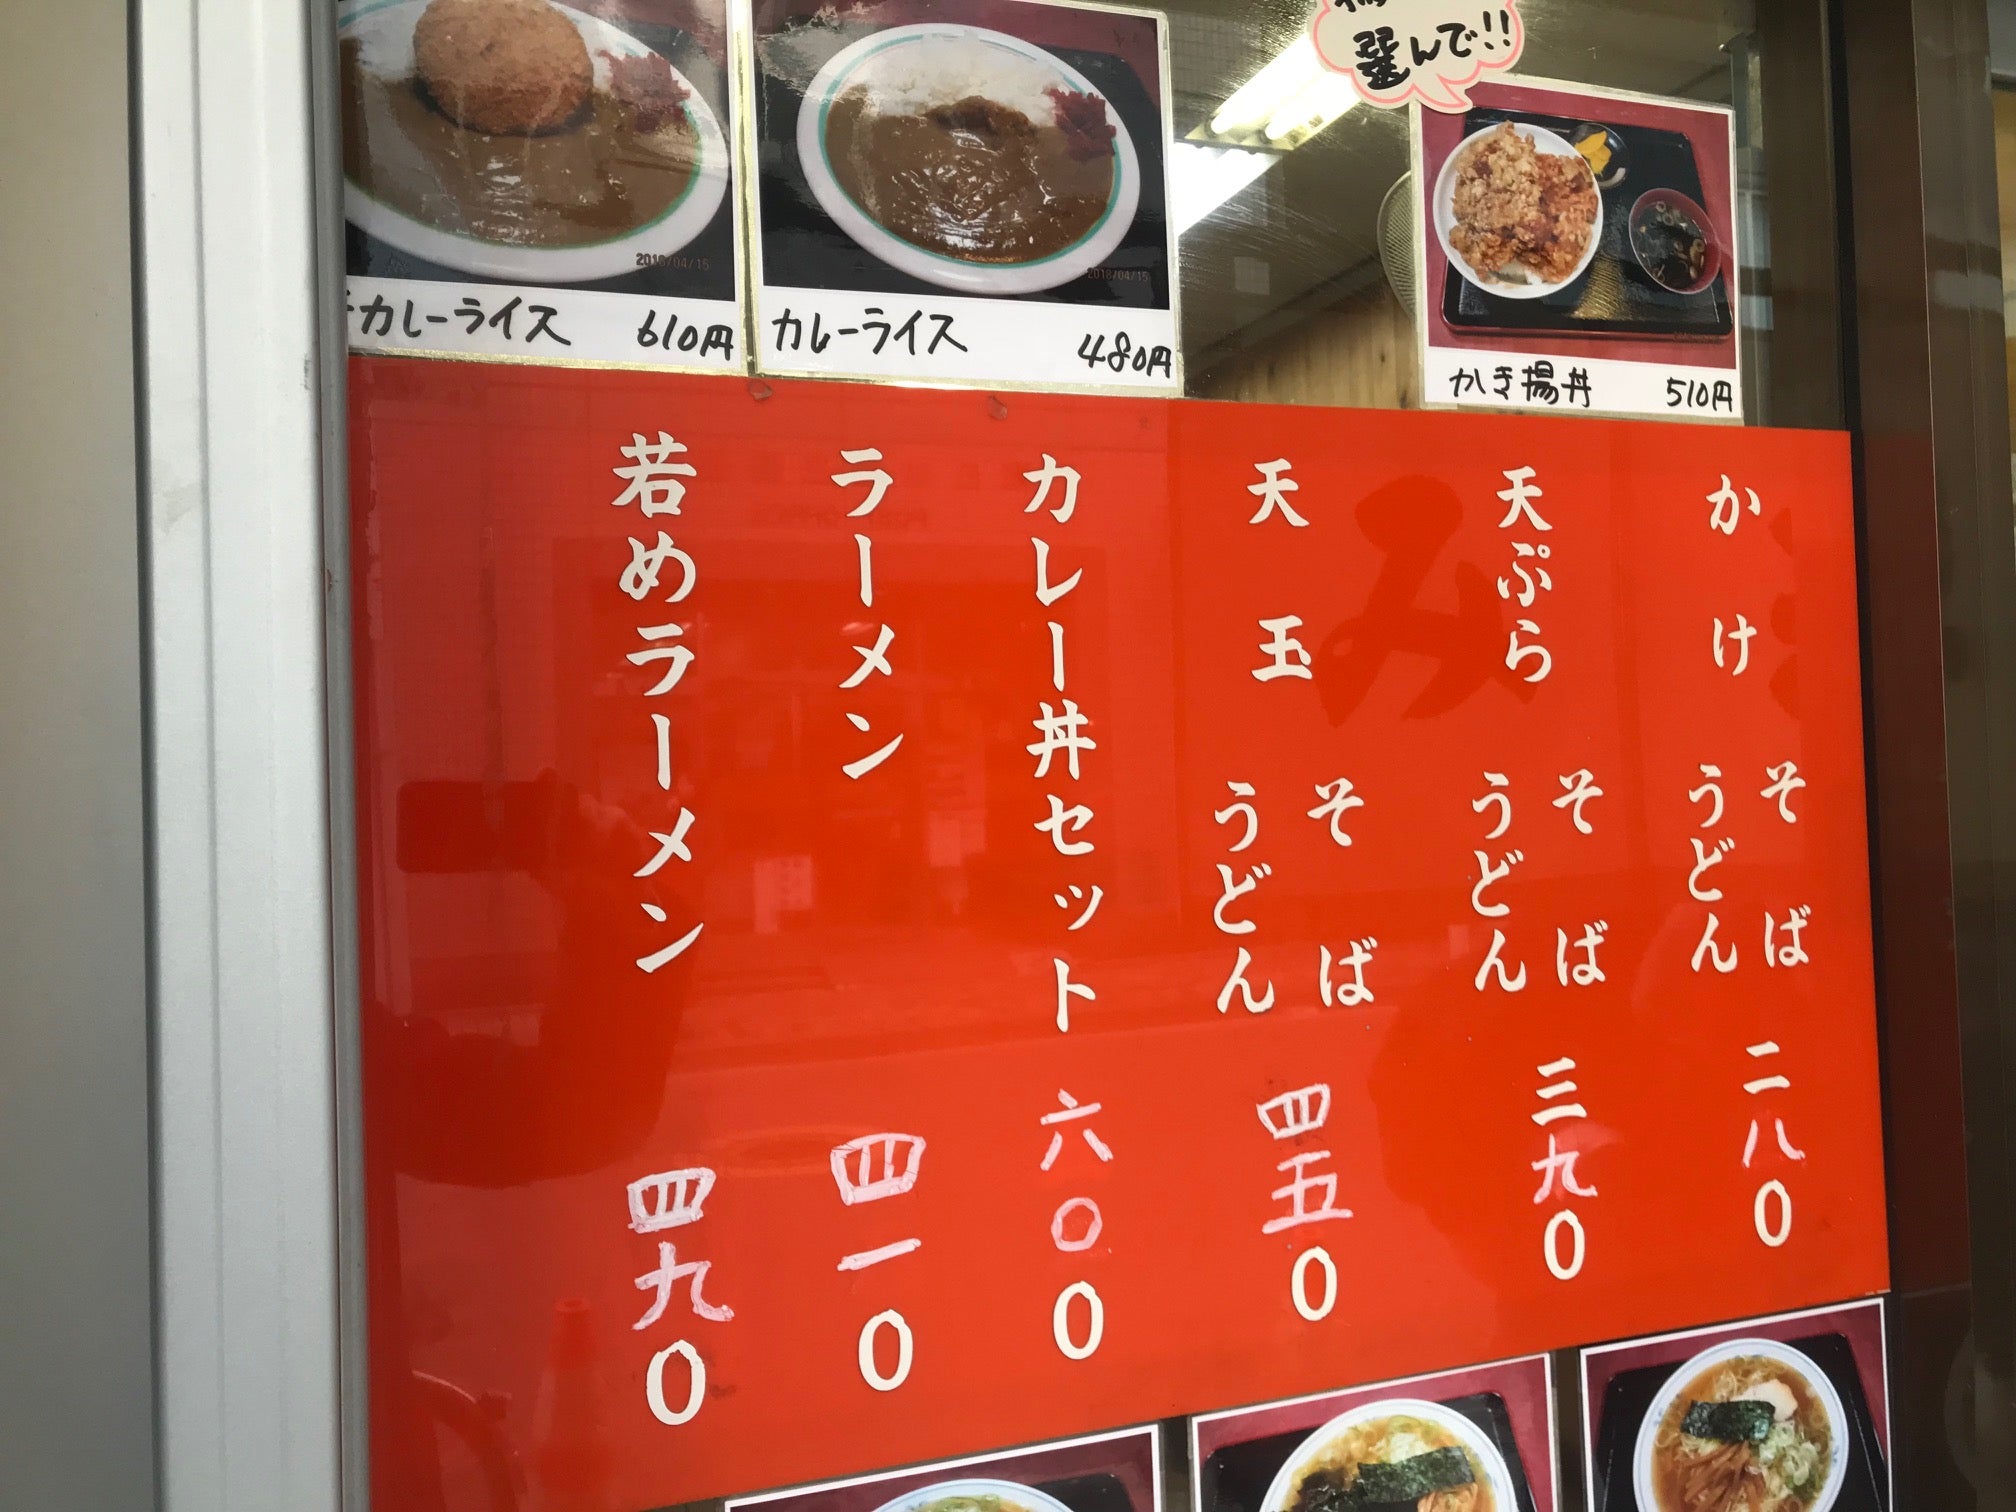 選んで!!
カレーライス 610円
カレーライス 480円
かき揚丼 510円
かけ そば うどん 二八〇
天ぷら そば うどん 三九〇
天玉 そば うどん 四五〇
カレー丼セット 六〇〇
ラーメン 四一〇
若めラーメン 四九〇